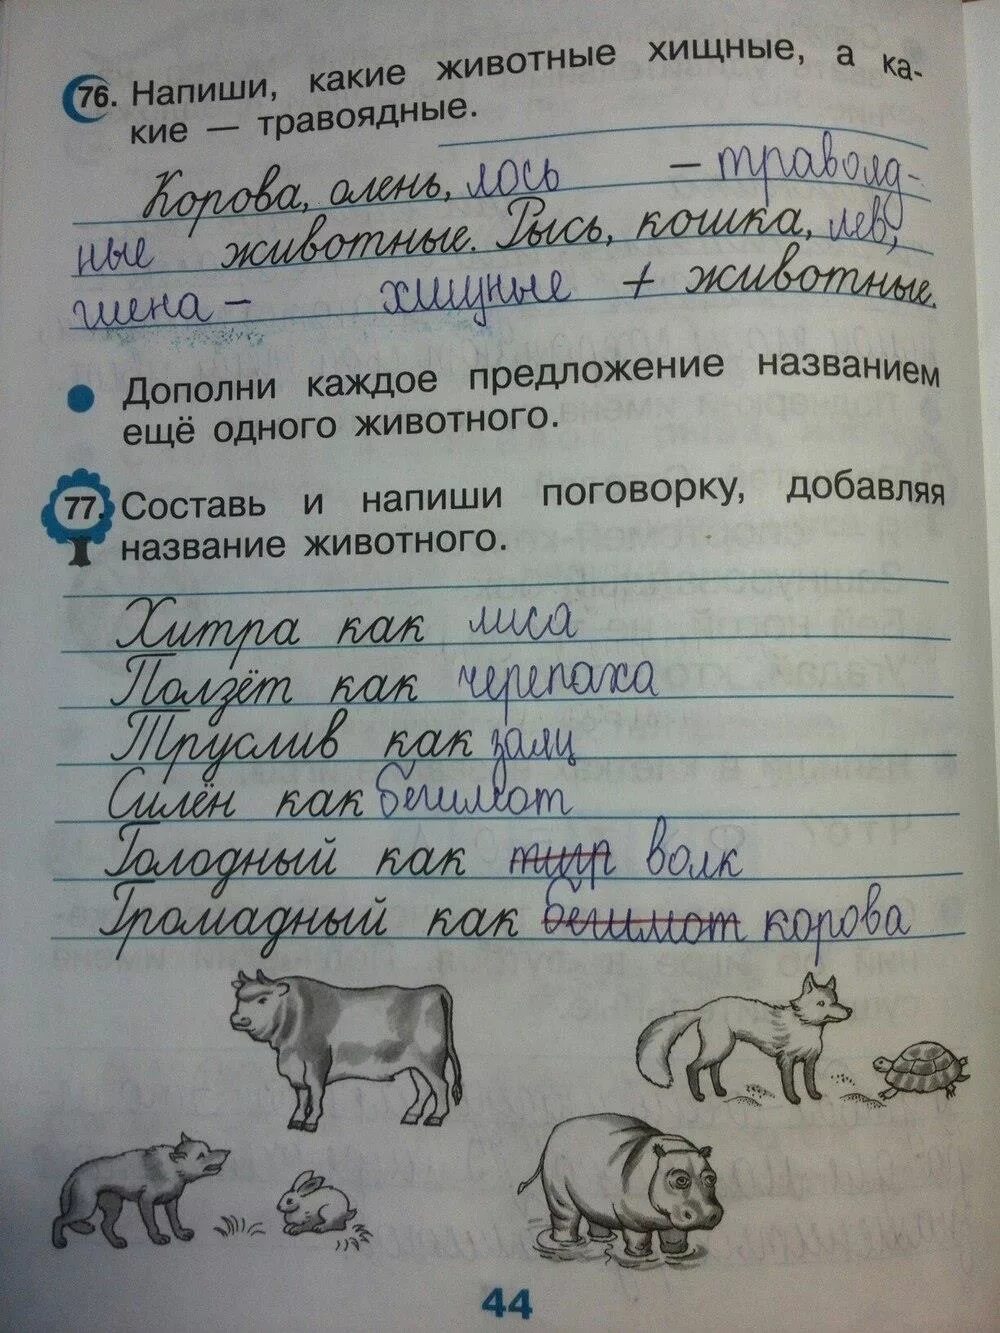 76. Напиши, какие животные хищные, а ка-
кие — травоядные.
Корова, олень, лось — травояд-
ные животные. Рысь, кошка, лев,
гиена — хищные + животные.
Дополни каждое предложение названием
ещё одного животного.
77. Составь и напиши поговорку, добавляя
название животного.
Хитра как лиса
Ползёт как черепаха
Труслив как заяц
Силён как бегимот
Голодный как тигр волк
Громадный как бегимот корова
44